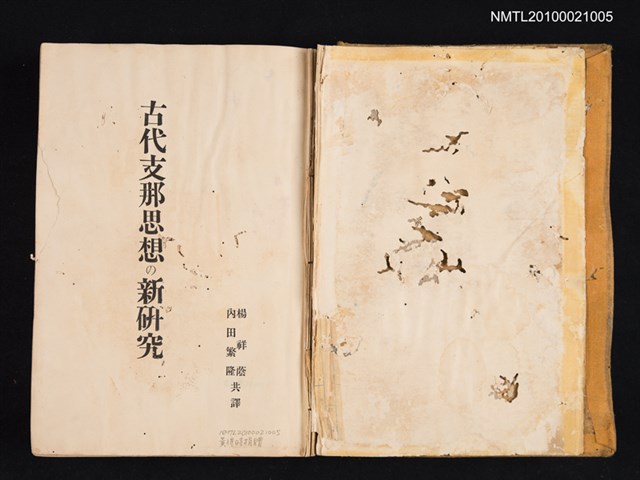 NMTL20100021005
古代支那思想の新研究
楊祥蔭
內田繁隆共譯
NMTL20100021005